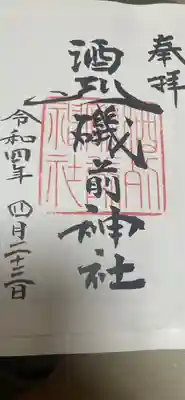 奉拝
酒列磯前神社
令和四年 四月二十三日